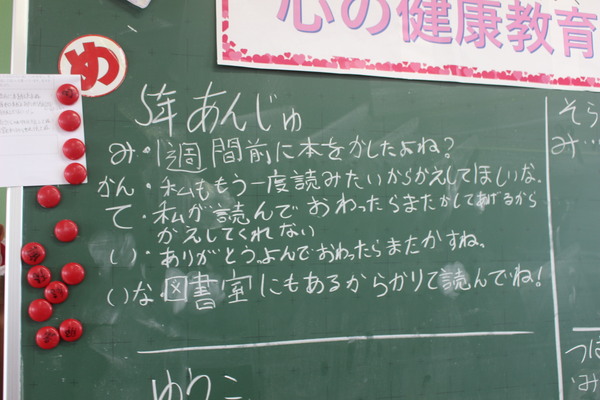 心の健康教育
め
5年 あんじゅ
み・1週間前に本をかしたよね?
かん・私ももう一度読みたいからかえしてほしいな。
て・私が読んでおわったらまたかしてあげるから
かえしてくれない
い・ありがとう。よんでおわったらまたかすね。
いな・図書室にもあるからかりて読んでね!
ゆうこ
そら
み・
つぼ
み